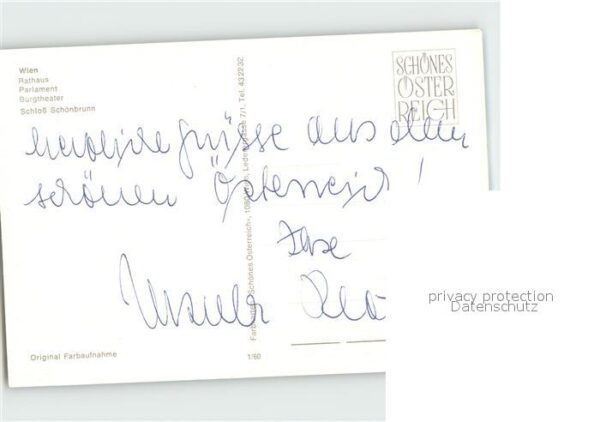 Wien
Rathaus
Parlament
Burgtheater
Schloß Schönbrunn
SCHÖNES
ÖSTER
REICH
herzliche Grüsse aus dem
schönen Österreich!
Ihre
Ursula
Schönes Österreich«, 1080 Wien, Lederergasse 7/1, Tel. 432232
Original Farbaufnahme
1/60
privacy protection
Datenschutz